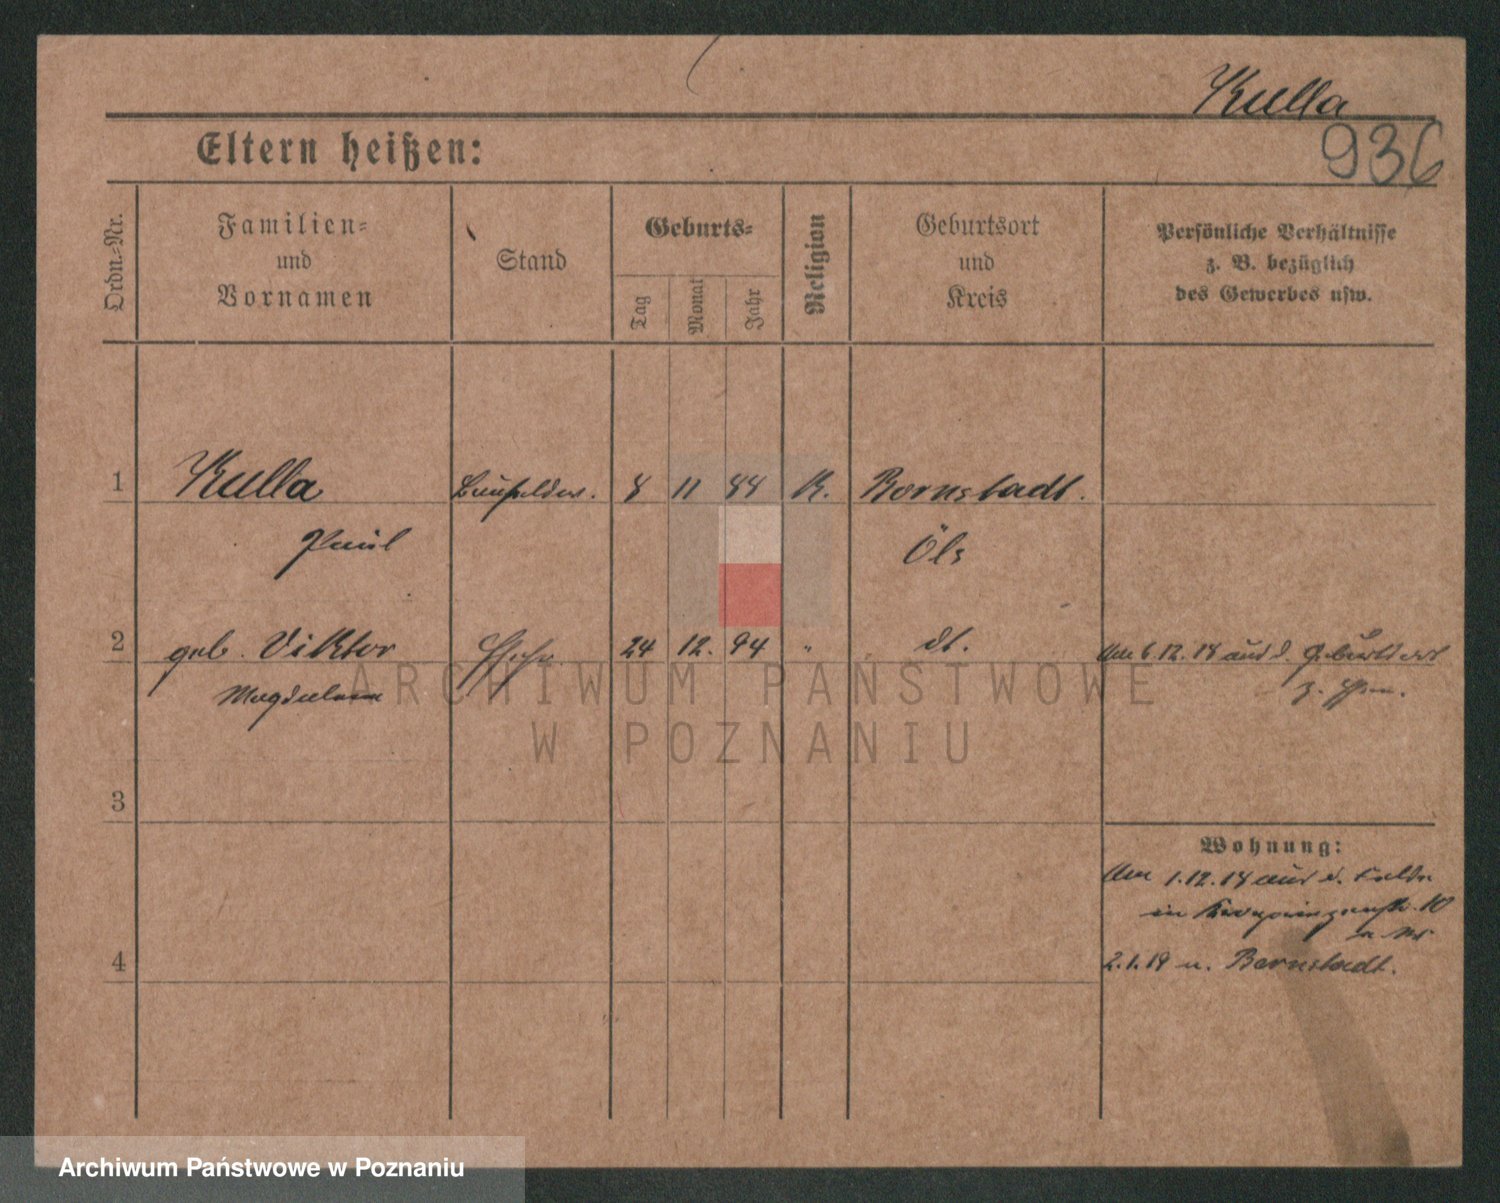 Kulla
936
Eltern heißen:
Ordn.-Nr.
Familien-
und
Vornamen
Stand
Geburts-
Tag
Monat
Jahr
Religion
Geburtsort
und
Kreis
Persönliche Verhältnisse
z. B. bezüglich
des Gewerbes usw.
1
Kulla
8 11 88 K. Bernstadt.
Paul
Öls
2
geb. Viktor
Ehefr.
24 12. 94 " dt.
Am 6.12.18 aus d.
Magdalena
3
Wohnung:
Am 1.12.18 aus d. Felde
in Kronprinzenstr. 10
4
2.1.19 n. Bernstadt.
ARCHIWUM PAŃSTWOWE
W POZNANIU
Archiwum Państwowe w Poznaniu